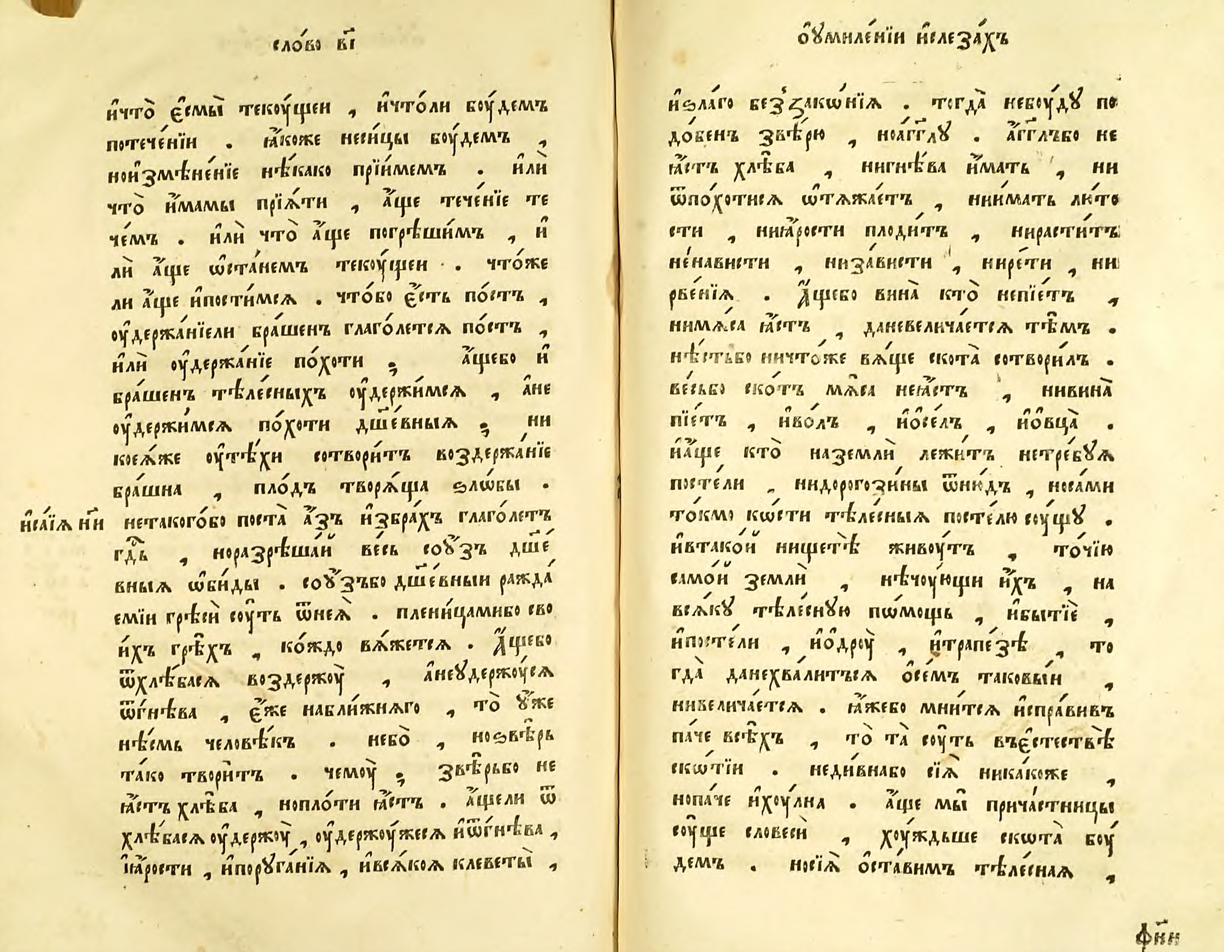 сло́во в҃і
и҆что̀ є҆смы̀ текоу́щеи , и҆что́ли боу́демъ
потече́нїи . ꙗ҆́коже неси́цы боу́демъ ,
нои҆змѣне́нїе нѣ́како прїи́мемъ . и҆лѝ
что̀ и҆́мамы прїѧ́ти , а҆́ще тече́нїе те
че́мъ . и҆лѝ что̀ а҆́ще погрѣши́мъ , и҆
лѝ а҆́ще ѡ҆ста́немъ текоу́щеи . что́же
ли а҆́ще и҆пости́мсѧ . что́бо є҆́сть по́стъ ,
оу҆держа́нїели бра́шенъ глаго́летсѧ по́стъ ,
и҆лѝ оу҆держа́нїе по́хоти ; а҆́щебо и҆
бра́шенъ тѣле́сныхъ оу҆держи́мсѧ , а҆не
оу҆держи́мсѧ по́хоти дш҃е́вныѧ ; ни
коеѧ́же оу҆тѣ́хи сотвори́тъ воздержа́нїе
бра́шна , пло́дъ творѧ́ща ѕло́бы .
и҆са́їѧ н҃и нетакого́бо поста̀ а҆́зъ и҆збра́хъ глаго́летъ
гдⷭ҇ь , норазрѣша́й ве́сь сою́зъ дш҃е́
вныѧ ѡ҆би́ды . соу́зъбо дш҃е́вныи ражда́
емїи грѣсѝ соу́ть ѿнеѧ̀ . плени́цамибо сво
и́хъ грѣ́хъ , ко́ждо вѧ́жетсѧ . а҆́щебо
ѿхлѣ́басѧ воздержоу̀ , а҆неꙋдержоу́сѧ
ѿгнѣ́ва , є҆́же набли́жнѧго , то̀ ᲂу҆же
нѣ́смь человѣ́къ . небо̀ , ноѕвѣ́рь
та́ко твори́тъ . чемоу̀ ; звѣ́рьбо не
ꙗ҆́стъ хлѣ́ба , нопло́ти ꙗ҆́стъ . а҆́щели ѿ
хлѣ́басѧ оу҆держоу̀ , оу҆держоу́жесѧ и҆ѿгнѣ́ва ,
и҆ꙗ҆́рости , и҆порꙋга́нїѧ , и҆всѧ́коѧ клеветы̀ ,
ѻ҆ꙋмиле́нїи и҆слеза́хъ
и҆ѕла́го беззако́нїѧ . тогда̀ небоу́дꙋ по
до́бенъ звѣ́рю , ноа҆́гг҃лꙋ . а҆́гг҃лъбо не
ꙗ҆́стъ хлѣ́ба , нигнѣ́ва и҆́мать , ни
ѿпо́хотисѧ ѡ҆тѧжа́етъ , нии҆́мать лю́то
сти , ниꙗ҆́рости плоди́тъ , нирасти́тъ
не́нависти , низа́висти , нире́ти , ни
рве́нїѧ . а҆́щебо вина̀ кто̀ непїе́тъ ,
нимѧ́са ꙗ҆́стъ , даневелича́етсѧ тѣ́мъ .
нѣ́стьбо ничто́же вѧ́ще скота̀ сотвори́лъ .
ве́сьбо ско́тъ мѧ́са неꙗ҆́стъ , нивина̀
пїе́тъ , и҆во́лъ , и҆ѻ҆се́лъ , и҆ѻ҆вца̀ .
и҆а҆́ще кто̀ наземлѝ лежи́тъ нетре́бꙋѧ
посте́ли , нидорогози́ны ѿню́дъ , носа́ми
то́кмо ко́сти тѣле́сныѧ посте́лю соу́щꙋ .
и҆втако́й нищетѣ̀ живоу́тъ , то́чїю
само́й землѝ , нѣчоу́ющи и҆́хъ , на
всѧ́кꙋ тѣле́снꙋю по́мощь , и҆бытїѐ ,
и҆посте́ли , и҆ѻ҆дроу̀ , и҆трапе́зѣ , то
гда̀ данехва́литьсѧ ѻ҆се́мъ таковы́и ,
нивелича́етсѧ . ꙗ҆́жебо мни́тсѧ и҆спра́вивъ
па́че всѣ́хъ , то̀ та̀ соу́ть въє҆стествѣ̀
ско́тїи . неди́внабо сїѧ̀ ника́коже ,
нопа́че и҆хоу́лна . а҆́ще мы̀ прича́стницы
соу́ще словесѝ , хоу́ждьше скота̀ боу́
демъ . носїѧ̀ ѻ҆ста́вимъ тѣле́снаѧ ,